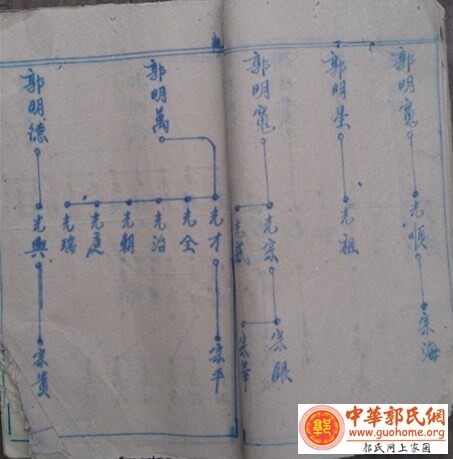 郭明寬
光順
宗海
郭明星
光祖
郭明寬
光宗
光武
宗銀
宗華
郭明萬
光才
光全
光治
光朝
光廷
光瑞
宗平
郭明德
光興
宗貴
中華郭氏網
www.guohome.org
郭氏网上家园